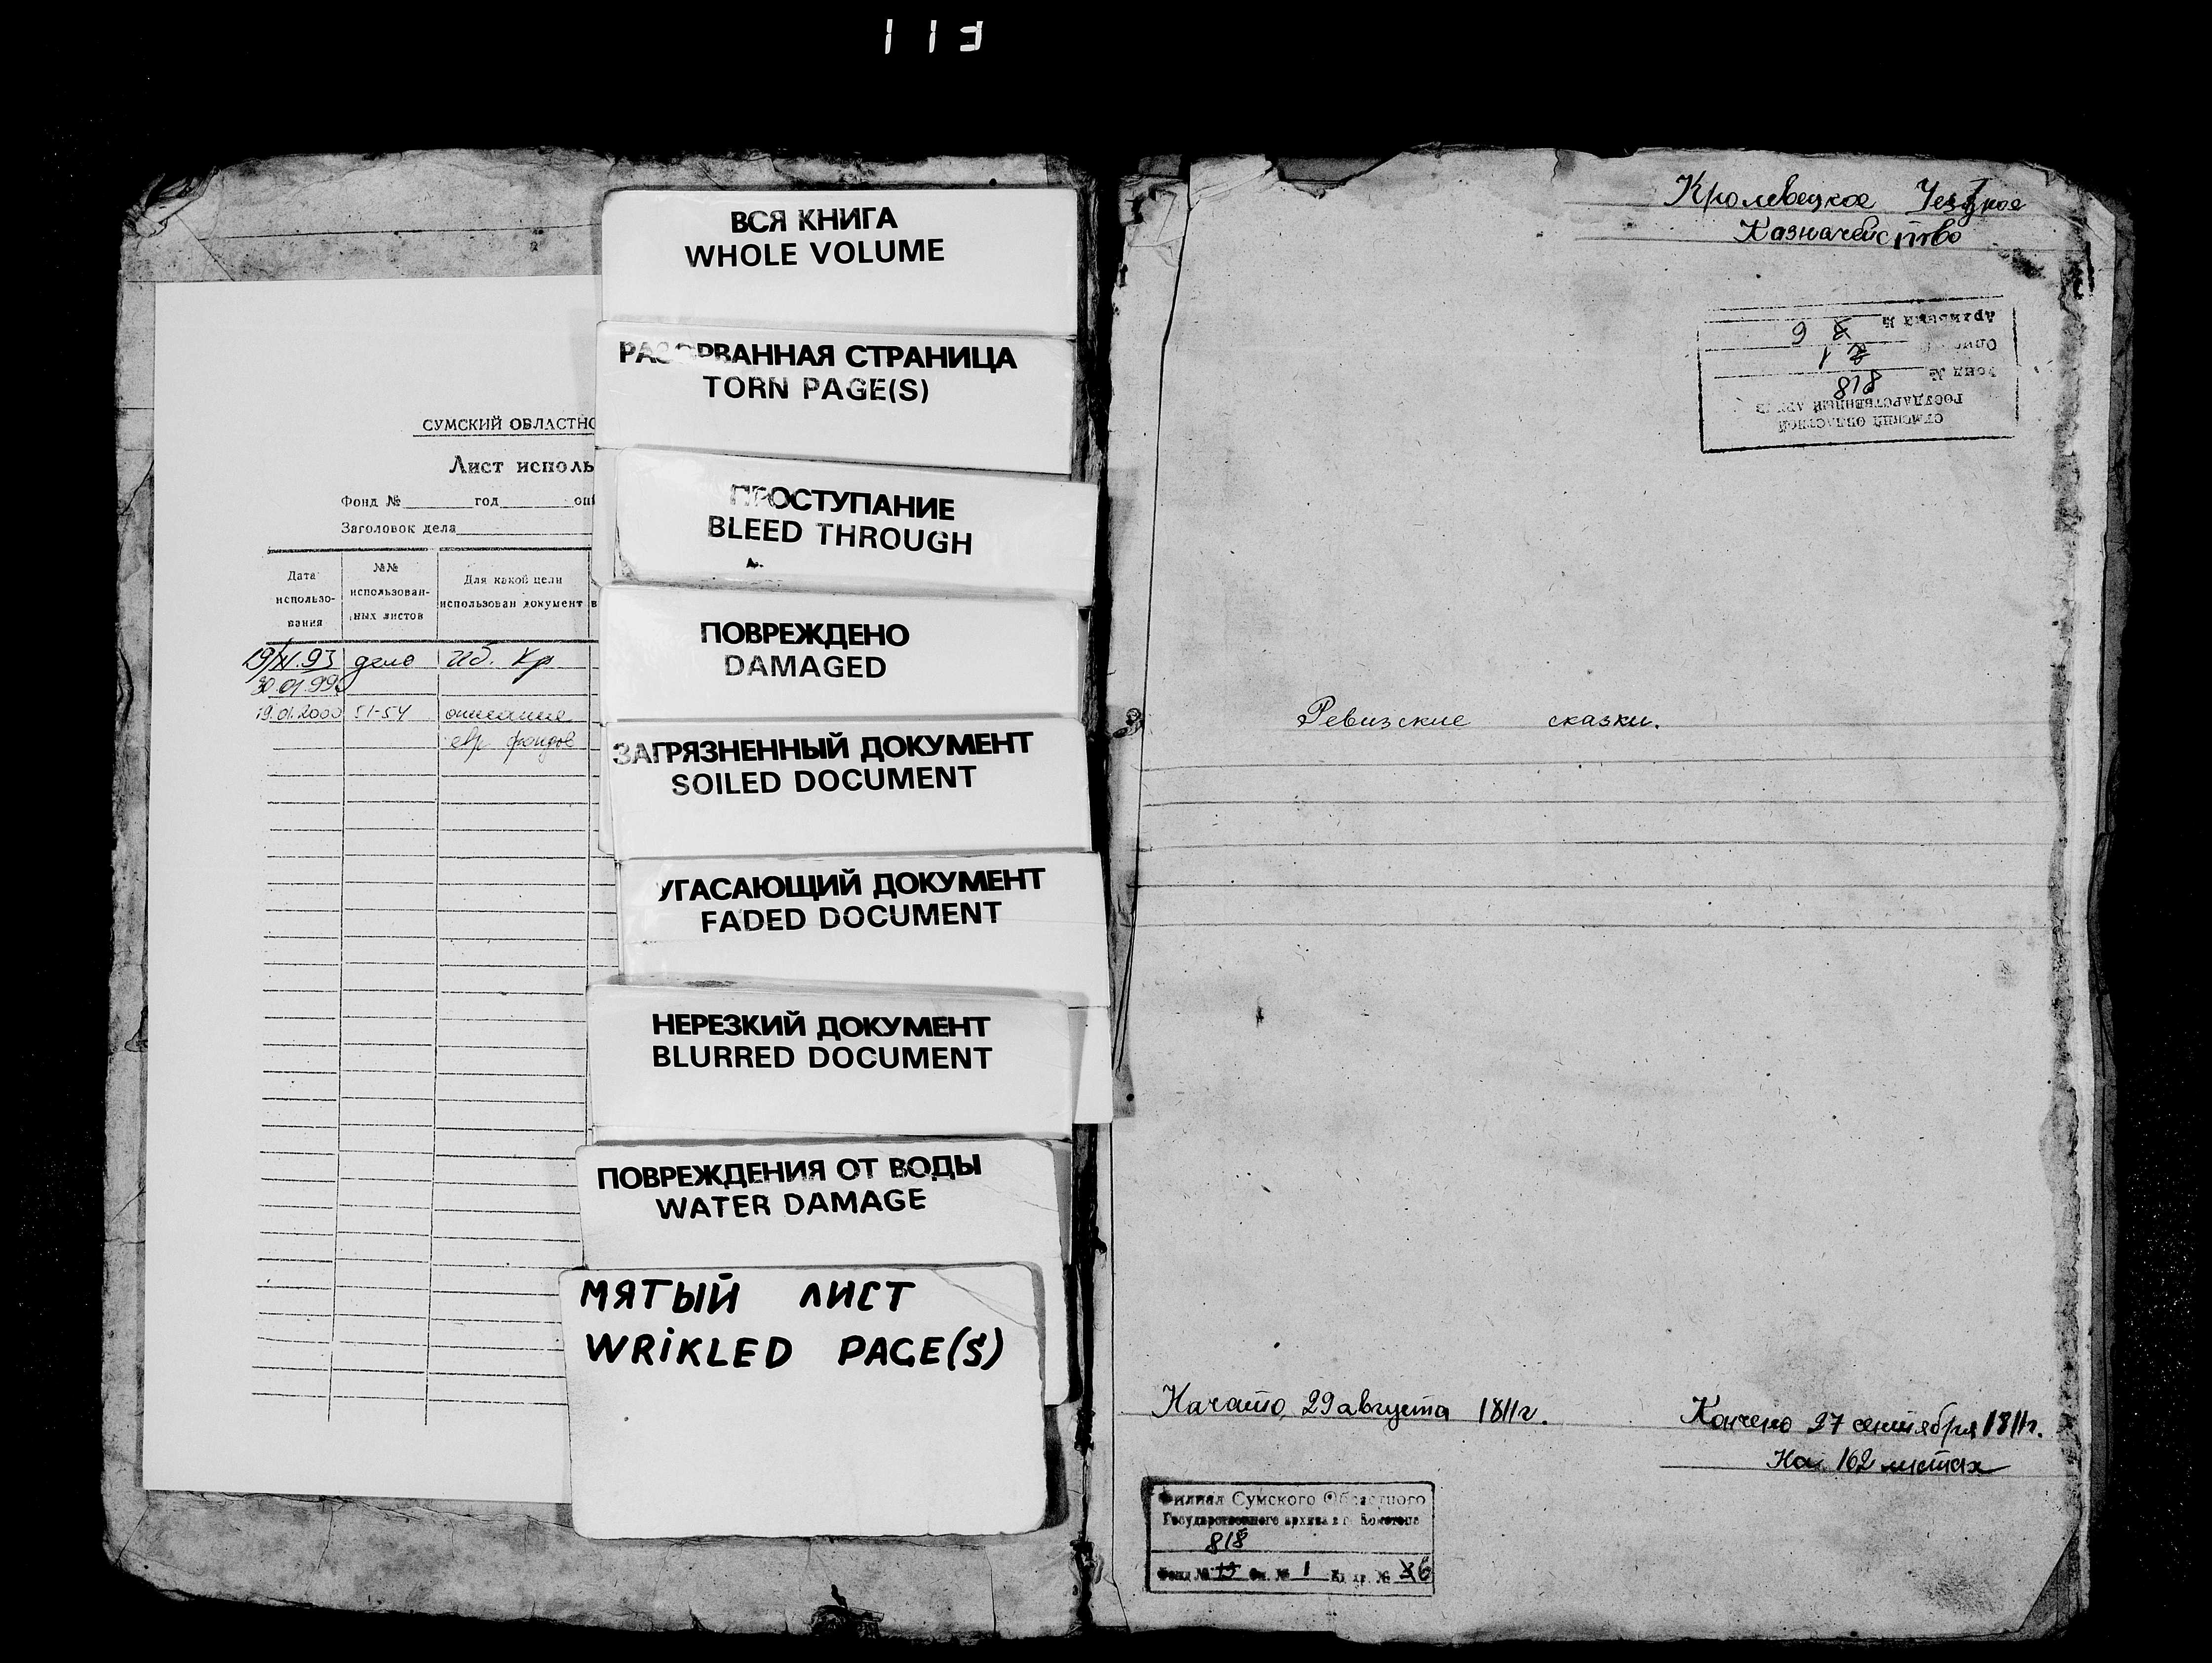 113
СУМСКИЙ ОБЛАСТНО
Лист исполь
Фонд № год опи
Заголовок дела
Дата использо-вания
№№ использован-ных листов
Для какой цели использован документ
19/XI.93 дело
30.01.99
19.01.2000 51-54 описание
евр. фондов
ВСЯ КНИГА
WHOLE VOLUME
РАЗОРВАННАЯ СТРАНИЦА
TORN PAGE(S)
ПРОСТУПАНИЕ
BLEED THROUGH
ПОВРЕЖДЕНО
DAMAGED
ЗАГРЯЗНЕННЫЙ ДОКУМЕНТ
SOILED DOCUMENT
УГАСАЮЩИЙ ДОКУМЕНТ
FADED DOCUMENT
НЕРЕЗКИЙ ДОКУМЕНТ
BLURRED DOCUMENT
ПОВРЕЖДЕНИЯ ОТ ВОДЫ
WATER DAMAGE
МЯТЫЙ ЛИСТ
WRIKLED PAGE(S)
Кролевецкое Уездное
Казначейство
СУМСКИЙ ОБЛАСТНОЙ
ГОСУДАРСТВЕННЫЙ АРХИВ
Фонд № 818
Опись 1
Архивный № 6
Ревизские сказки.
Начато 29 августа 1811г.
Кончено 27 сентября 1811г.
На 162 листах
Филиал Сумского Областного
Государственного архива в г. Конотопе
818
Фонд № Оп. № 1 Ед. хр. № 6